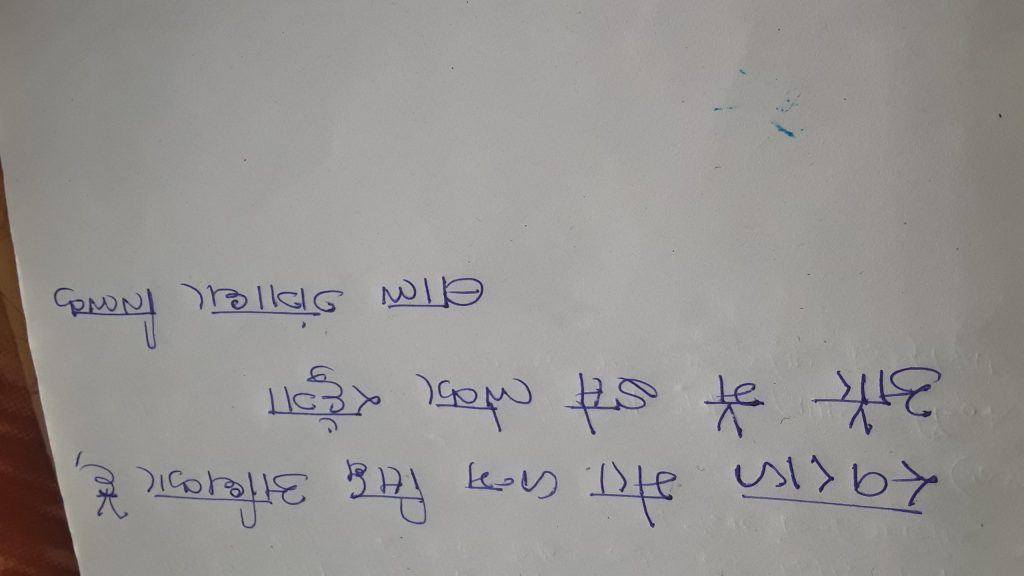 स्वराज मेरा जन्म सिद्ध अधिकार है,
और मैं इसे लेकर रहूँगा
बाल गंगाधर तिलक